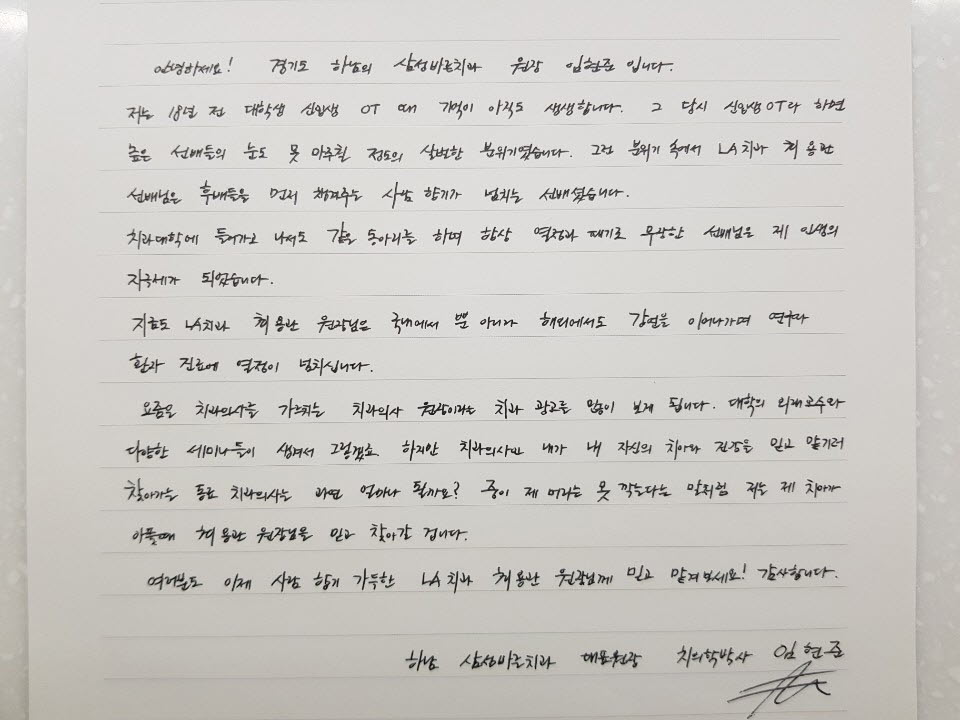 안녕하세요! 경기도 하남의 삼성바른치과 원장 임현준 입니다.
저는 18년 전 대학생 신입생 OT 때 기억이 아직도 생생합니다. 그 당시 신입생OT라 하면
높은 선배들의 눈도 못 마주칠 정도의 살벌한 분위기였습니다. 그런 분위기 속에서 LA치과 최용관
선배님은 후배들을 먼저 챙겨주는 사람 향기가 넘치는 선배셨습니다.
치과대학에 들어가고 나서도 같은 동아리를 하며 항상 열정과 패기로 무장한 선배님은 제 인생의
자극제가 되었습니다.
지금도 LA치과 최용관 원장님은 국내에서 뿐 아니라 해외에서도 강연을 이어나가며 연구와
환자 진료에 열정이 넘치십니다.
요즘은 치과의사를 가르치는 치과의사 원장이라는 치과 광고를 많이 보게 됩니다. 대학의 외래교수와
다양한 세미나들이 생겨서 그렇겠죠. 하지만 치과의사인 내가 내 자신의 치아와 건강을 믿고 맡기러
찾아가는 동료 치과의사는 과연 얼마나 될까요? 중이 제 머리는 못 깎는다는 말처럼 저는 제 치아가
아플때 최용관 원장님을 믿고 찾아갈 겁니다.
여러분도 이제 사람 향기 가득한 LA치과 최용관 원장님께 믿고 맡겨보세요! 감사합니다.
하남 삼성바른치과 대표원장 치의학박사 임현준